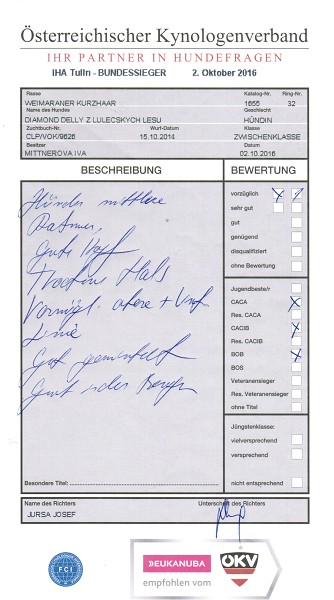 Österreichischer Kynologenverband
IHR PARTNER IN HUNDEFRAGEN
IHA Tulln - BUNDESSIEGER 2. Oktober 2016
Rasse Katalog-Nr. Ring-Nr.
WEIMARANER KURZHAAR 1656 32
Name des Hundes Geschlecht
DIAMOND DELLY Z LULECSKYCH LESU HÜNDIN
Zuchtbuch-Nr. Wurf-Datum Klasse
CLP/VOK/9626 15.10.2014 ZWISCHENKLASSE
Besitzer Datum
MITTNEROVA IVA 02.10.2016
BESCHREIBUNG
Hündin mittlere
Rahmen,
gute Kopf
Trockene Hals
Vorzügl. obere + Unt
Linie
Gut gewinkelt
Gut in der Bewegu
Besondere Titel:
BEWERTUNG
vorzüglich
sehr gut
gut
genügend
disqualifiziert
ohne Bewertung
Jugendbeste/r
CACA
Res. CACA
CACIB
Res. CACIB
BOB
BOS
Veteranensieger
Res. Veteranensieger
ohne Titel
Jüngstenklasse:
vielversprechend
versprechend
nicht entsprechend
Name des Richters Unterschrift des Richters
JURSA JOSEF
FCI
EUKANUBA
empfohlen vom
ÖKV